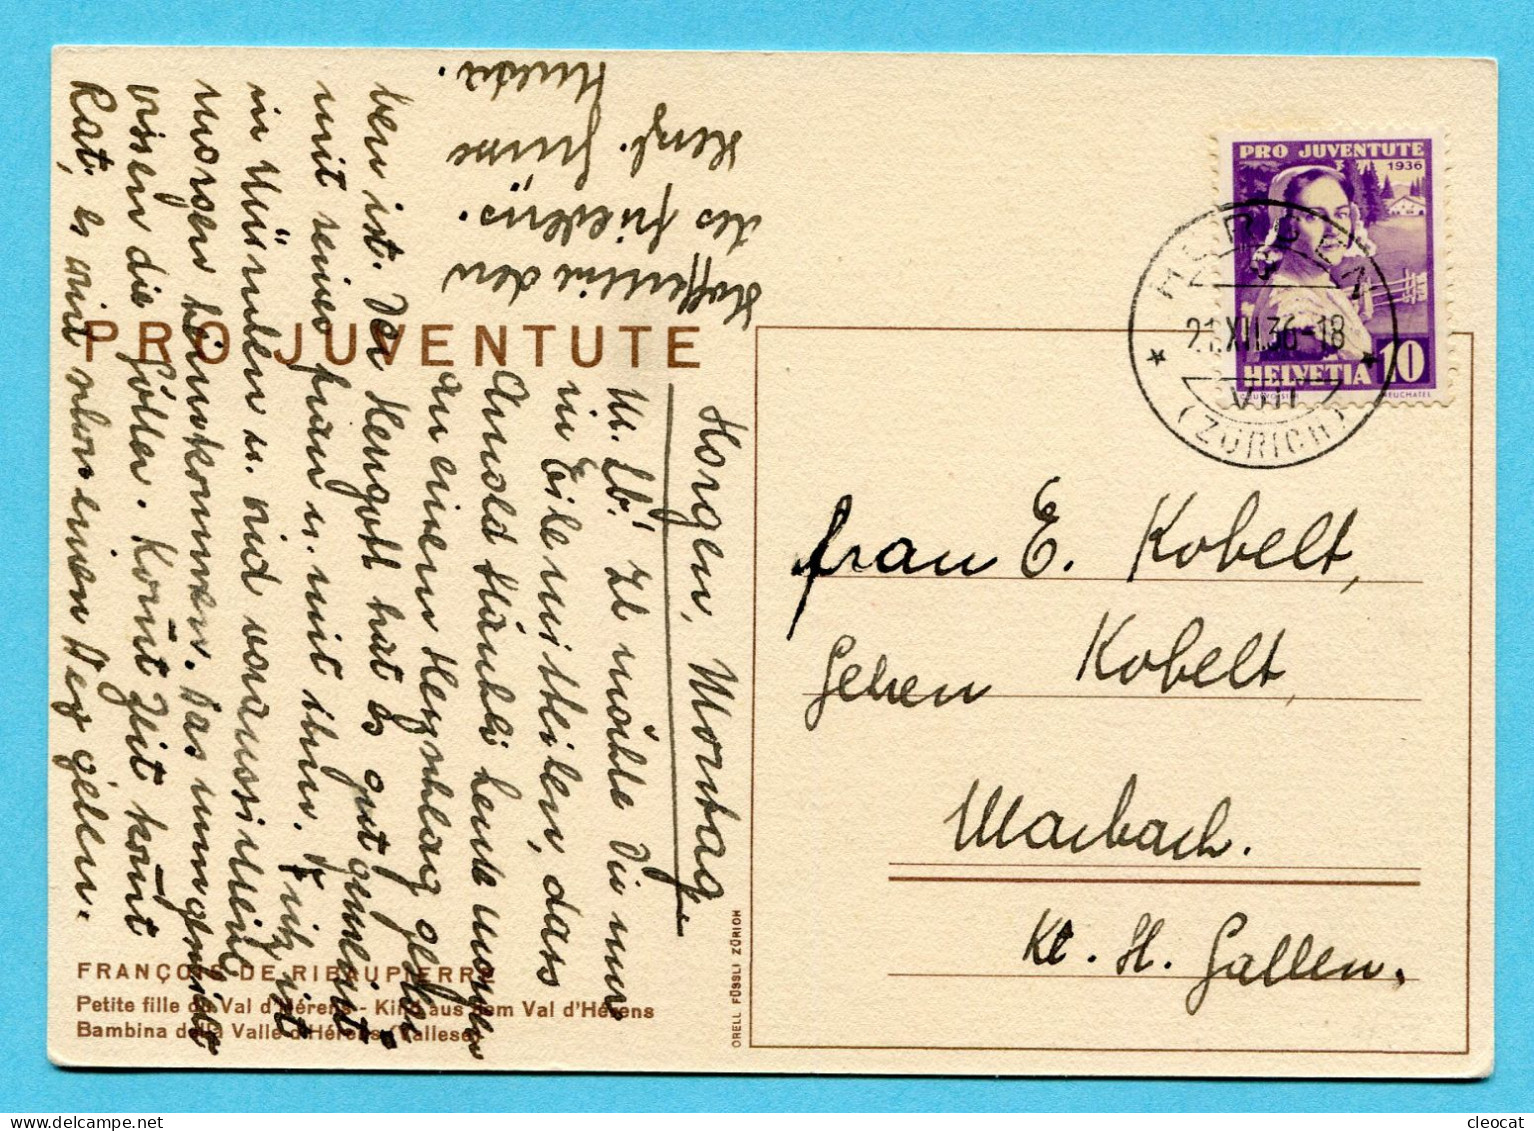 PRO JUVENTUTE
1936
HELVETIA 10
HORGEN
21.XII.36-18
VIII
(ZÜRICH)
PRO JUVENTUTE
Frau E. Kobelt,
Kobelt,
Marbach.
Kt. St. Gallen.
Horgen, Montag.
M. Lb! Ich möchte Dir nur
in Eile mitteilen, dass
Arnold Stäubli heute morgen
an einem Herzschlag gestor-
ben ist. Der Herrgott hat es gut gemeint
mit seiner Frau u. mit ihm. Er
in München u. wird voraussichtlich
morgen heimkommen. Das
wissen die Götter. Komt Zeit komt
Rat, es wird schon einen Weg geben.
Hoffentlich den
des Friedens.
Herzl. Grüsse
FRANÇOIS DE RIBAUPIERRE
Petite fille du Val d'Hérens - Kind aus dem Val d'Hérens
Bambina della Valle d'Hérens (Vallese)
ORELL FÜSSLI ZÜRICH
cleocat